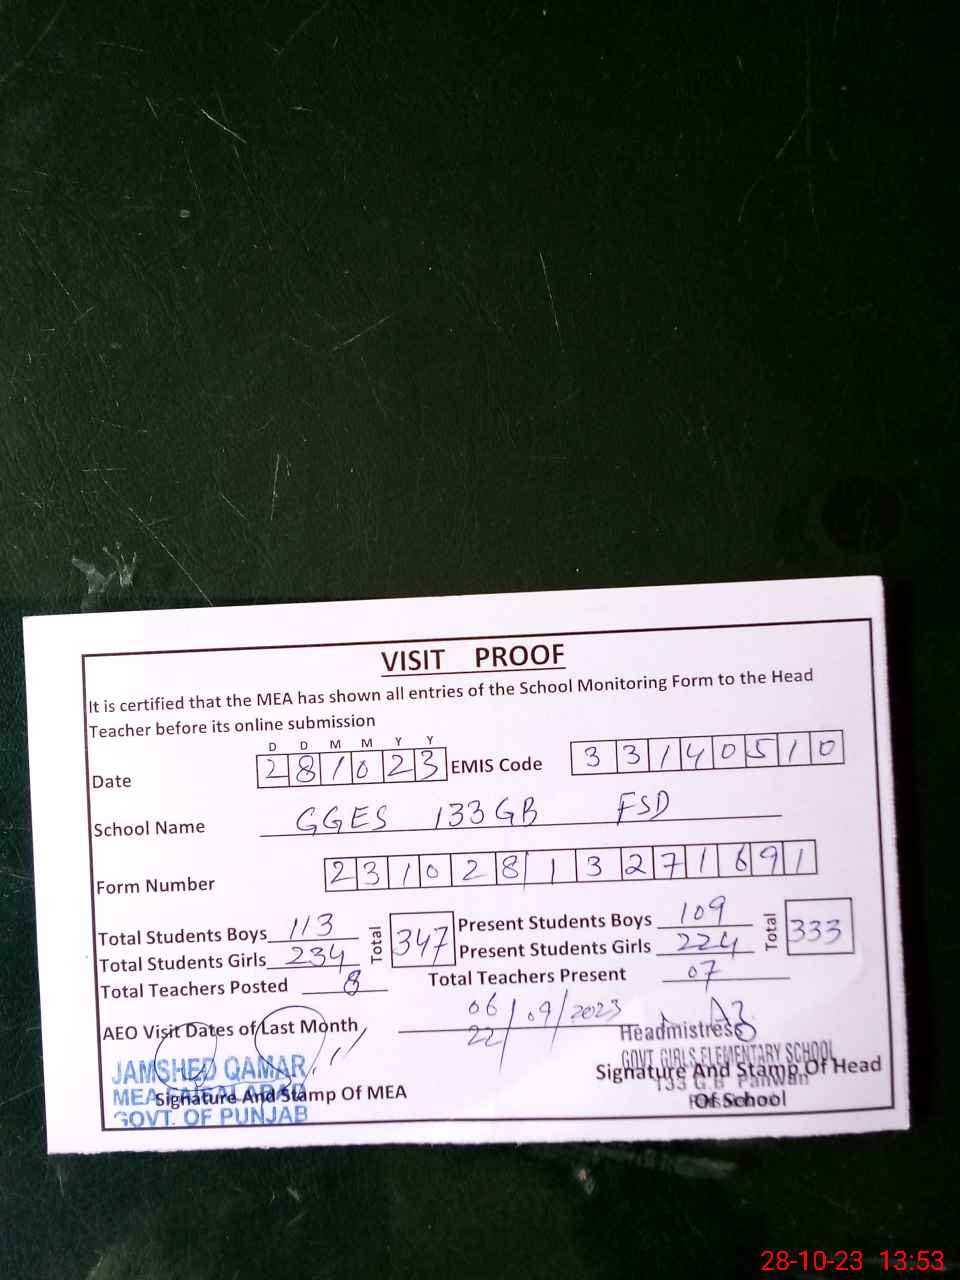 VISIT PROOF
It is certified that the MEA has shown all entries of the School Monitoring Form to the Head
Teacher before its online submission
D D M M Y Y
Date 2 8 1 0 2 3 EMIS Code 3 3 1 4 0 5 1 0
School Name GGES 133 GB FSD
Form Number 2 3 1 0 2 8 1 3 2 7 1 6 9 1
Total Students Boys 113 Total 347 Present Students Boys 109 Total 333
Total Students Girls 234 Present Students Girls 224
Total Teachers Posted 8 Total Teachers Present 07
AEO Visit Dates of Last Month 06/09/2023
22
Headmistress
JAMSHED QAMAR GOVT. GIRLS ELEMENTARY SCHOOL
MEA FAISALABAD 133 G.B Panwan
GOVT. OF PUNJAB
Signature And Stamp Of MEA Signature And Stamp Of Head
Of School
28-10-23 13:53